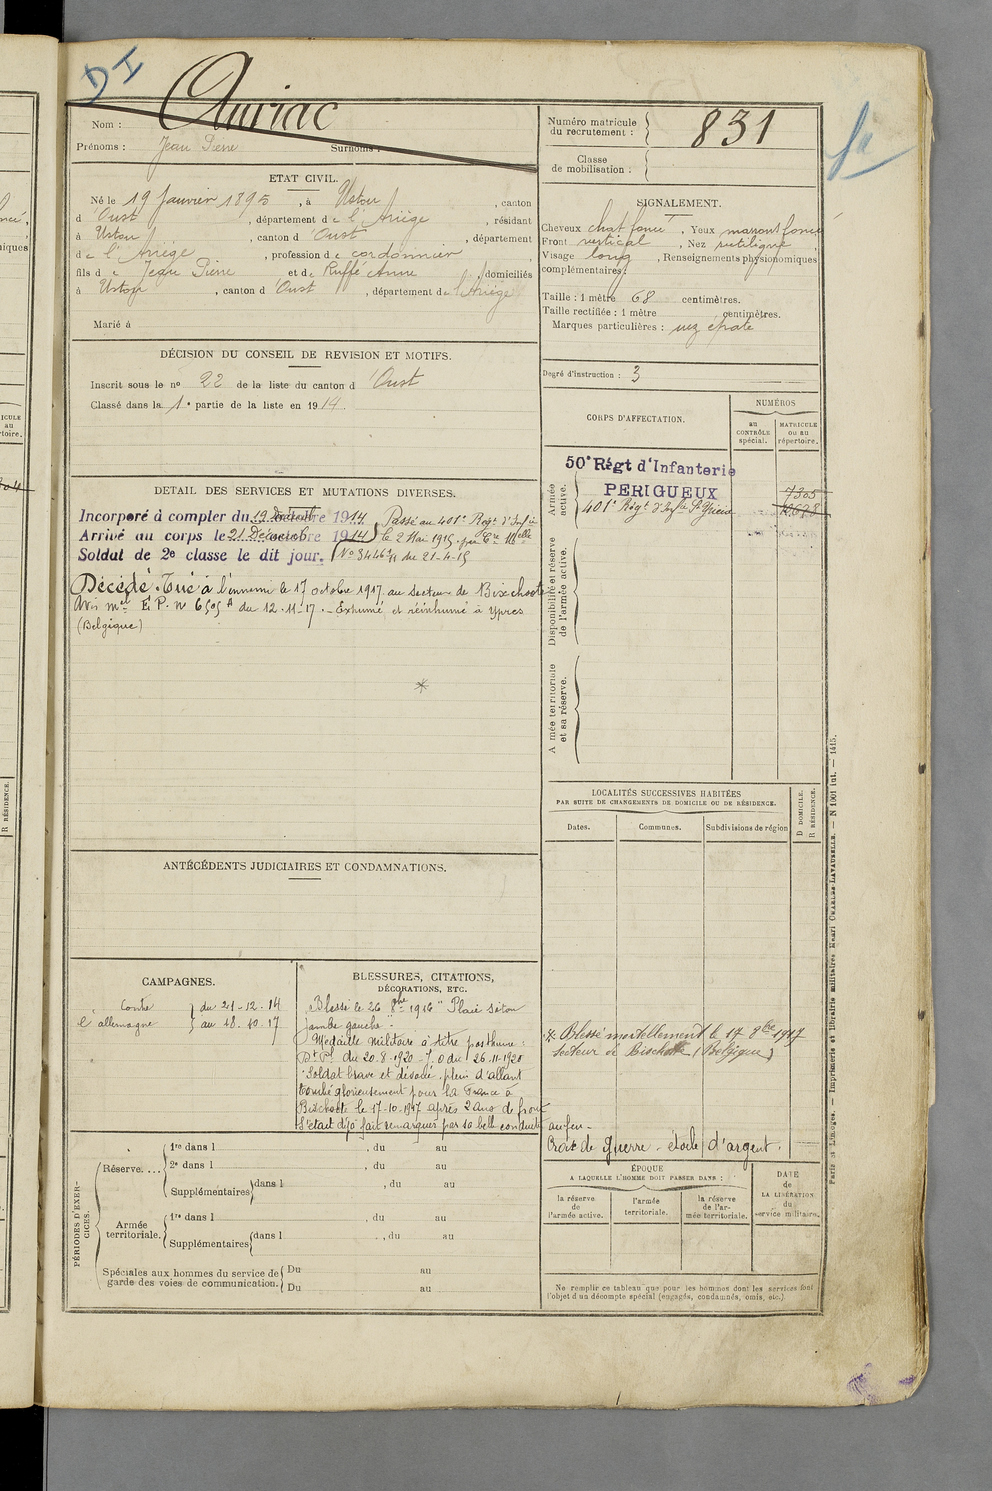 DI
Nom : Auriac
Prénoms : Jean Pierre Surnoms :
Numéro matricule du recrutement : 831
Classe de mobilisation :
ETAT CIVIL.
Né le 19 Janvier 1895, à Ustou, canton
d'Oust, département de l'Ariège, résidant
à Ustou, canton d'Oust, département
de l'Ariège, profession de cordonnier,
fils de Jean Pierre et de Ruffé Anne, domiciliés
à Ustou, canton d'Oust, département de l'Ariège
Marié à
SIGNALEMENT.
Cheveux chat foncé, Yeux marront foncé
Front vertical, Nez rectiligne,
Visage long, Renseignements physionomiques
complémentaires :
Taille : 1 mètre 68 centimètres.
Taille rectifiée : 1 mètre centimètres.
Marques particulières : nez épaté
Degré d'instruction : 3
DÉCISION DU CONSEIL DE REVISION ET MOTIFS.
Inscrit sous le no 22 de la liste du canton d'Oust
Classé dans la 1e partie de la liste en 1914.
DETAIL DES SERVICES ET MUTATIONS DIVERSES.
Incorporé à compter du 19 Décembre 1914
Arrivé au corps le 21 Décembre 1914
Soldat de 2e classe le dit jour.
Passé au 401e Regt d'Infie
le 2 Mai 1915 par Cre Melle
No 3446 du 21-4-15
Décédé. Tué à l'ennemi le 17 octobre 1917 au secteur de Bixchoote
Avis mel E.P. no 6505 A du 12-11-17. - Exhumé et réinhumé à Ypres
(Belgique)
*
CORPS D'AFFECTATION.
NUMÉROS
au CONTRÔLE spécial.
MATRICULE ou au répertoire.
Armée active.
50e Régt d'Infanterie
PERIGUEUX
7305
401e Régt d'Infie
Disponibilité et réserve de l'armée active.
A mée territoriale et sa réserve.
LOCALITÉS SUCCESSIVES HABITÉES
PAR SUITE DE CHANGEMENTS DE DOMICILE OU DE RÉSIDENCE.
Dates.
Communes.
Subdivisions de région
D DOMICILE.
R RÉSIDENCE.
ANTÉCÉDENTS JUDICIAIRES ET CONDAMNATIONS.
CAMPAGNES.
Contre l'allemagne du 21-12-14
au 18-10-17
BLESSURES, CITATIONS,
DÉCORATIONS, ETC.
Blessé le 26 8bre 1916 "Plaie séton
jambe gauche"
Médaille militaire à titre posthume :
Dt Pl du 20-8-1920 - J.O du 26-11-1920
"Soldat brave et dévoué, plein d'allant
tombé glorieusement pour la France à
Bixchoote le 17-10-1917 après 2 ans de front
S'était déjà fait remarquer par sa belle conduite au feu -
Croix de guerre - étoile d'argent.
* Blessé mortellement le 17 8bre 1917
Secteur de Bischoote (Belgique)
PÉRIODES D'EXERCICES.
Réserve....
1re dans l , du au
2e dans l , du au
Supplémentaires dans l , du au
Armée territoriale.
1re dans l , du au
Supplémentaires dans l , du au
Spéciales aux hommes du service de garde des voies de communication.
Du au
Du au
ÉPOQUE
A LAQUELLE L'HOMME DOIT PASSER DANS :
la réserve de l'armée active.
l'armée territoriale.
la réserve de l'armée territoriale.
DATE de LA LIBÉRATION du service militaire.
Ne remplir ce tableau que pour les hommes dont les services font
l'objet d'un décompte spécial (engagés, condamnés, omis, etc.).
Paris et Limoges. — Imprimerie et librairie militaires Henri CHARLES-LAVAUZELLE. — N 1001 int. — 1415.